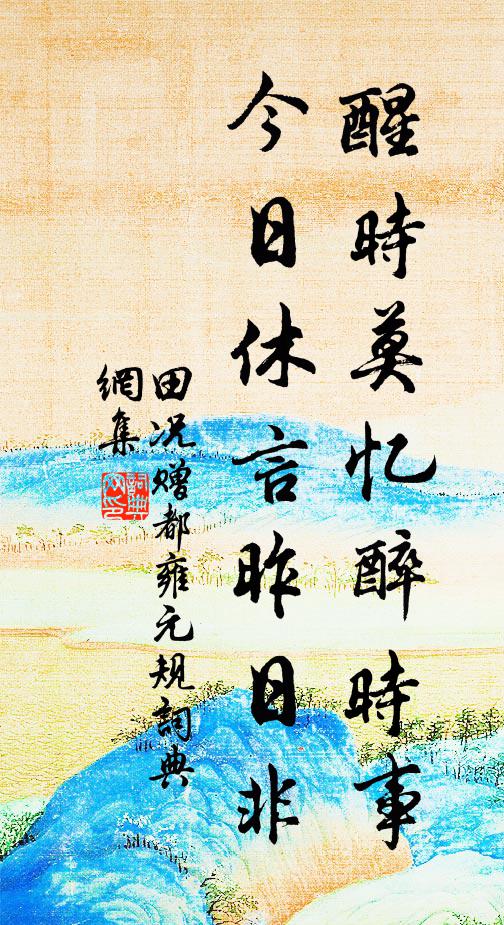 醒時莫忆醉時事
今日休言昨日非
田况赠都雍元規詞典
網集
詞典